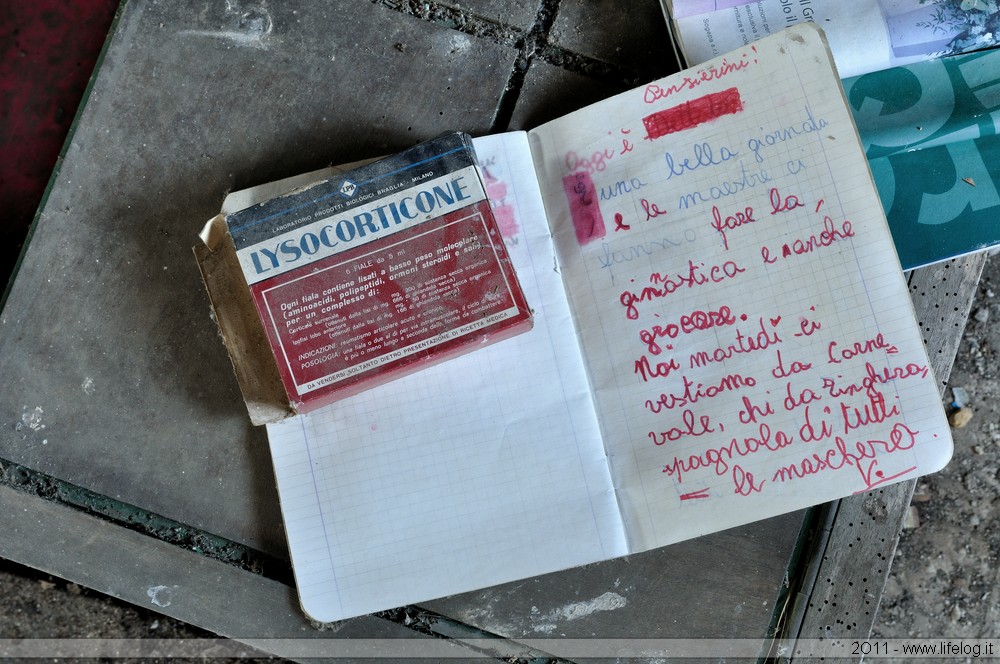 LPB
LABORATORIO PRODOTTI BIOLOGICI BRAGLIA - MILANO
LYSOCORTICONE
6 FIALE da 5 ml
Ogni fiala contiene lisati a basso peso molecolare
(aminoacidi, polipeptidi, ormoni steroidi e sali)
per un complesso di:
INDICAZIONI: reumatismo articolare acuto e cronico.
POSOLOGIA: una fiala o due al dì per via intramuscolare, a ciclo
e più o meno lungo a seconda delle forme da combattere
DA VENDERSI SOLTANTO DIETRO PRESENTAZIONE DI RICETTA MEDICA
Pensierini!
Oggi è
una bella giornata
e le maestre ci
fanno fare la,
ginnastica e anche
giocare.
Noi martedì ci
vestiamo da Carne=
vale, chi da zinghera,
spagnola di tutti
= le maschere.
V.
2011 - www.lifelog.it